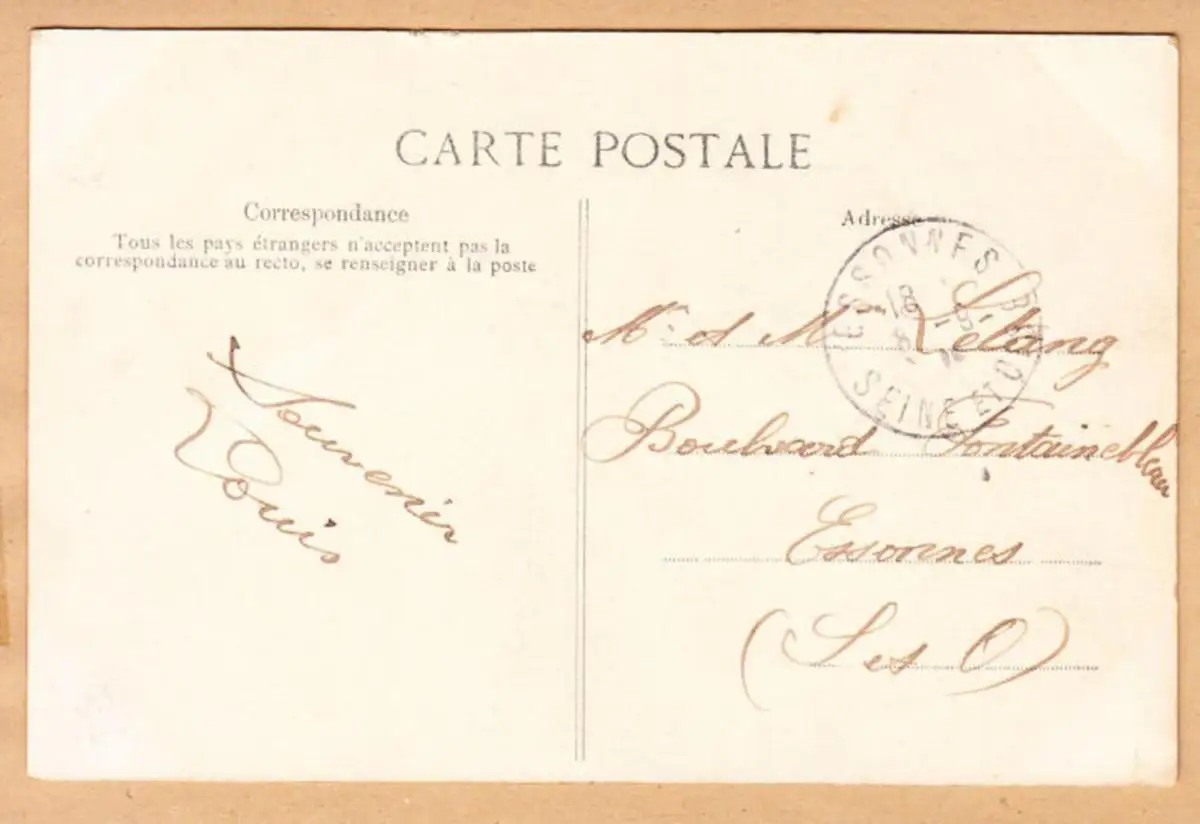 CARTE POSTALE
Correspondance
Tous les pays étrangers n'acceptent pas la
correspondance au recto, se renseigner à la poste
Souvenir
Louis
Adresse
ESSONNES
SEINE ET O
Mr et Mme Létang
Boulevard Fontainebleau
Essonnes
(S et O)